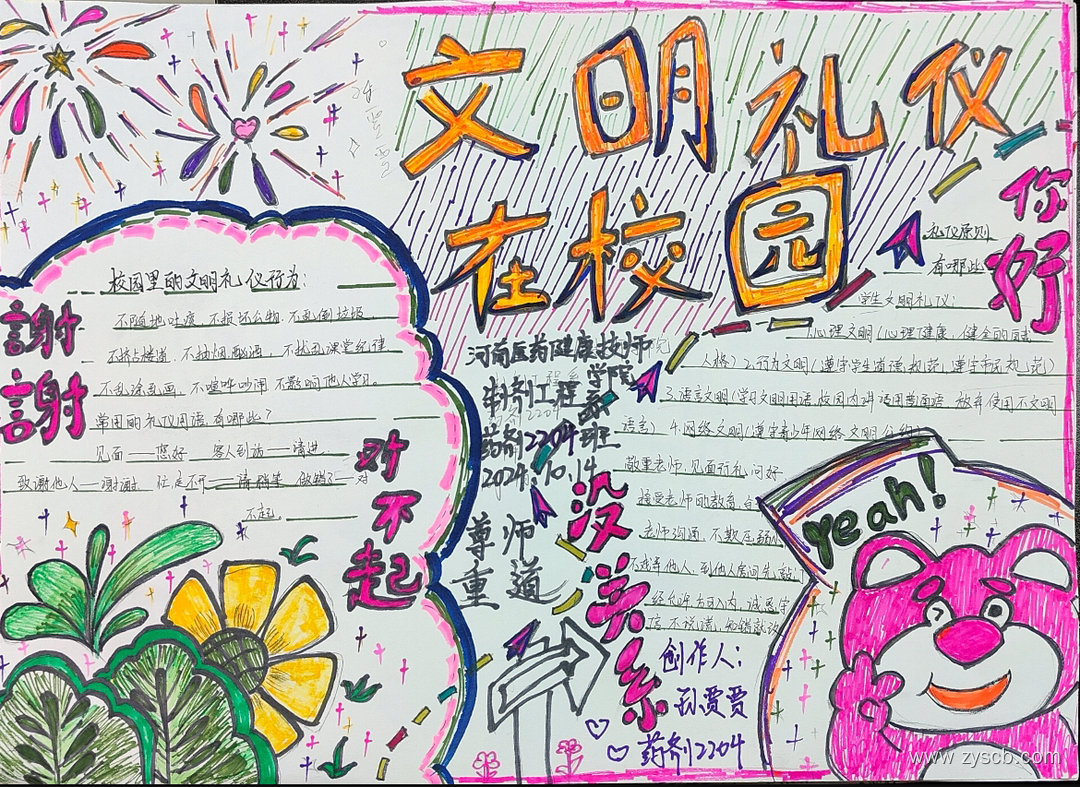 文明礼仪
在校园
你好
謝謝
校园里的文明礼仪行为:
不随地吐痰 不损坏公物. 不乱倒垃圾
不挤占楼道. 不抽烟酗酒. 不扰乱课堂纪律
不乱涂乱画. 不喧哗吵闹 不影响他人学习.
常用的礼仪用语有哪些?
见面——您好 客人到访——请进
致谢他人——谢谢 忙走不开——请稍等 做错了——对
不起.
对不起
河南医药健康技师
学院
制剂工程系
药剂2204班
2024.10.14
尊师
重道
没关系
礼仪原则
有哪些
学生文明礼仪:
心理文明(心理健康. 健全的
人格) 2.行为文明(遵守学生道德规范, 遵守市民规范)
3.语言文明(学习文明用语, 校园内讲 适用普通话. 放弃使用不文明
语言) 4.网络文明(遵守青少年网络文明公约)
敬重老师 见面行礼 问好
接受老师的教育
老师沟通 不欺压弱小
不戏弄他人. 到他人房间先敲
经允许方可入内. 诚恳守
信 不说谎. 知错就改
Yeah!
创作人:
孙贾贾
药剂2204
www.zyscb.com